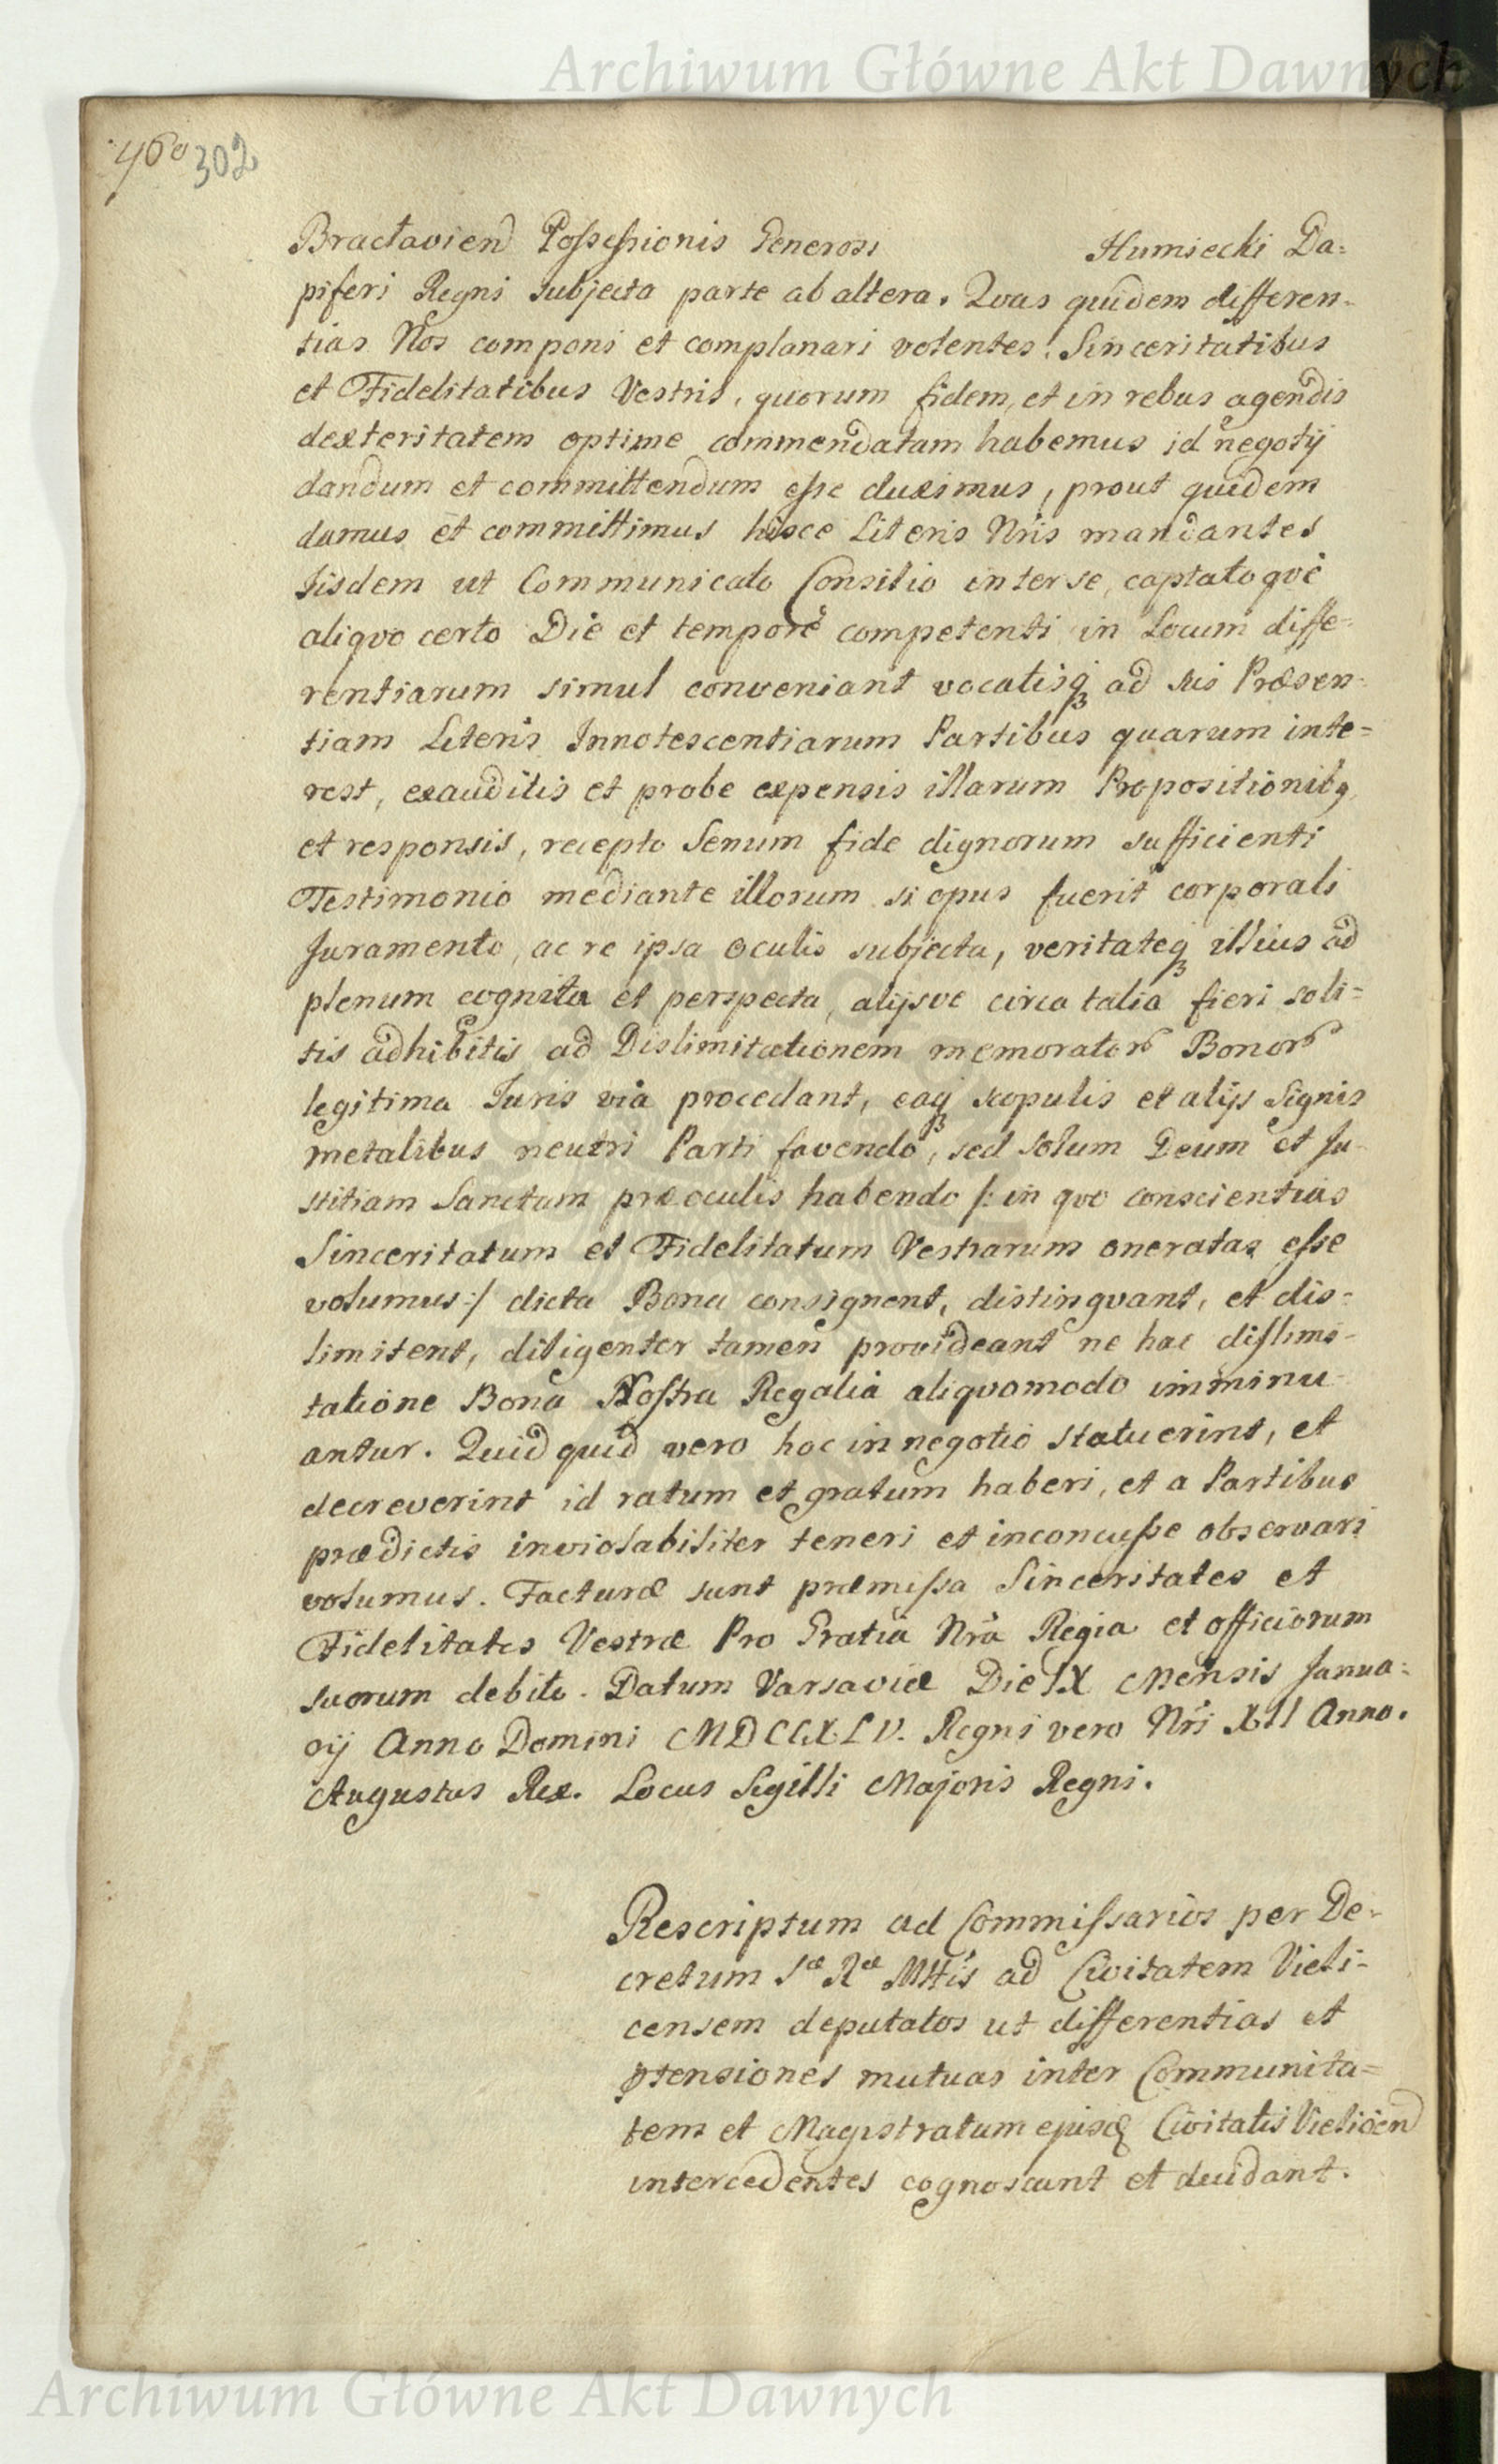 Archiwum Główne Akt Dawnych
460 302
Bractavien Possessionis Generosi Humiecki Da=
piferi Regni subjecta parte ab altera. Quas quidem differen=
tias Nos componi et complanari volentes. Sinceritatibus
et Fidelitatibus Vestris, quorum fidem, et in rebus agendis
dexteritatem optime commendatam habemus id negotij
dandum et committendum esse duximus, prout quidem
damus et committimus hisce Literis Nris mandantes
Iisdem ut Communicato Consilio inter se, captatoque
aliquo certo Die et tempore competenti in Locum diffe=
rentiarum simul conveniant vocatisq; ad sui Præsen=
tiam Literis Innotescentiarum Partibus quarum inte=
rest, exauditis et probe expensis illarum Propositionibq
et responsis, recepto Senum fide dignorum sufficienti
Testimonio mediante illorum si opus fuerit corporali
Juramento, ac re ipsa oculis subjecta, veritateq; illius ad
plenum cognita et perspecta, alijsve circa talia fieri soli=
tis adhibitis ad Dislimitationem memorator Bonor
legitima Juris via procedant, eaq; scopulis et alijs signis
metalibus neutri Parti favendo, sed solum Deum et Ju=
stitiam Sanctam præ oculis habendo /: in quo conscientias
Sinceritatum et Fidelitatum Vestrarum oneratas esse
volumus :/ dicta Bona consignent, distinguant, et dis=
limitent, diligenter tamen provideant ne hac dislimi=
tatione Bona Nostra Regalia aliquomodo imminu=
antur. Quidquid vero hoc in negotio statuerint, et
decreverint id ratum et gratum haberi, et a Partibus
prædictis inviolabiliter teneri et inconcusse observari
volumus. Facturæ sunt præmissa Sinceritates et
Fidelitates Vestræ Pro Gratia Nra Regia et officiorum
suorum debito. Datum Varsaviæ Die IX Mensis Janua=
rij Anno Domini MDCCXLV. Regni vero Nri XII Anno.
Augustus Rex. Locus Sigilli Majoris Regni.
Rescriptum ad Commissarios per De=
cretum Sæ Ræ Mttis ad Civitatem Vieli=
censem deputatos ut differentias et
ptensiones mutuas inter Communita=
tem et Magistratum ejusd Civitatis Vielicen
intercedentes cognoscant et decidant.
Archiwum Główne Akt Dawnych